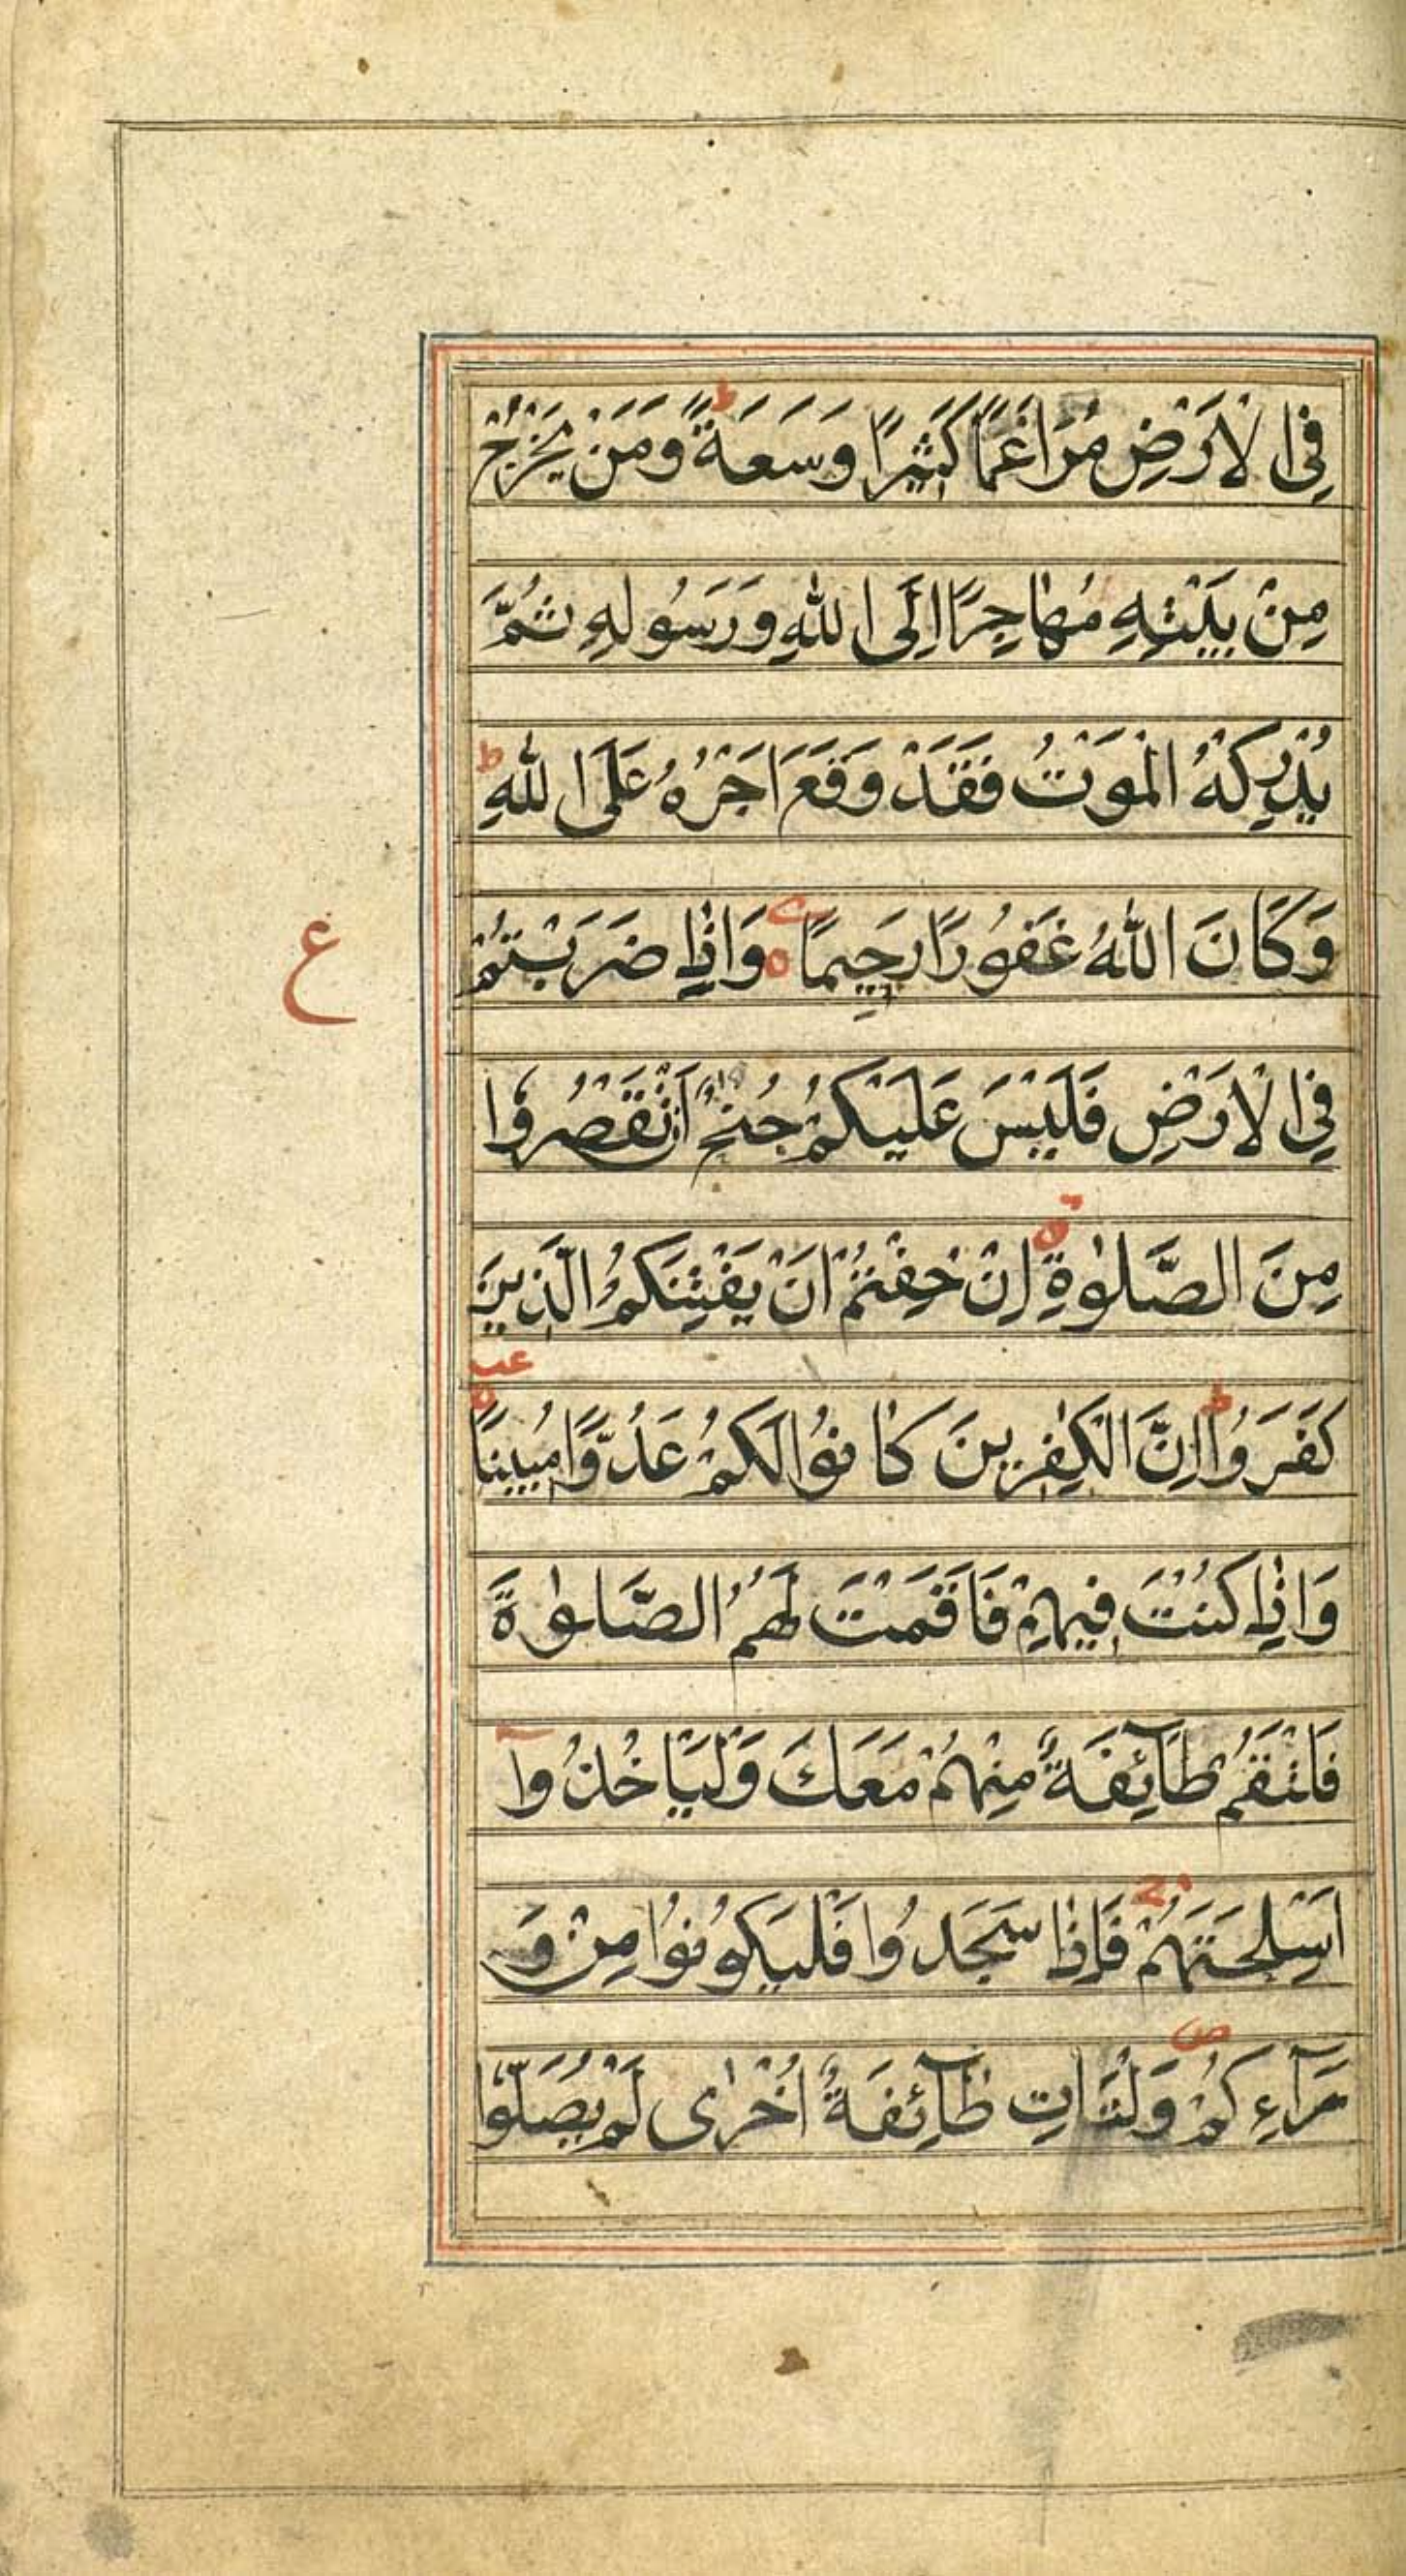 فِي الْاَرْضِ مُرَاغَمًا كَثِيْرًا وَسَعَةً ؕ وَمَنْ يَخْرُجْ
مِنْ بَيْتِهِ مُهَاجِرًا اِلَى اللّٰهِ وَرَسُولِهِ ثُمَّ
يُدْرِكْهُ الْمَوْتُ فَقَدْ وَقَعَ اَجْرُهُ عَلَى اللّٰهِ ؕ
وَكَانَ اللّٰهُ غَفُوْرًا رَحِيمًا وَاِذَا ضَرَبْتُمْ
ع
فِي الْاَرْضِ فَلَيْسَ عَلَيْكُمْ جُنٰحٌ اَنْ تَقْصُرُوا
مِنَ الصَّلٰوةِ اِنْ خِفْتُمْ اَنْ يَفْتِنَكُمُ الَّذِينَ
كَفَرُوا ؕ اِنَّ الْكٰفِرِينَ كَانُوْا لَكُمْ عَدُوًّا مُبِينًا
عب
وَاِذَا كُنْتَ فِيهِمْ فَاَقَمْتَ لَهُمُ الصَّلٰوةَ
فَلْتَقُمْ طَآئِفَةٌ مِنْهُمْ مَعَكَ وَلْيَاْخُذُوْآ
اَسْلِحَتَهُمْ فَاِذَا سَجَدُوْا فَلْيَكُوْنُوْا مِنْ وَ
رَآءِكُمْ ص وَلْتَاْتِ طَآئِفَةٌ اُخْرٰى لَمْ يُصَلُّوْا